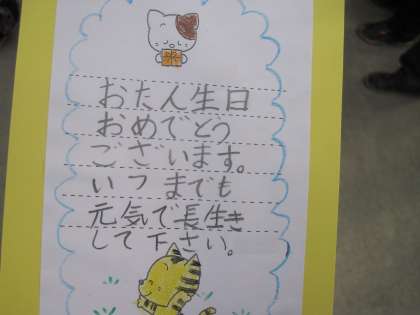 おたん生日
おめでとう
ございます。
いつまでも
元気で長生き
して下さい。